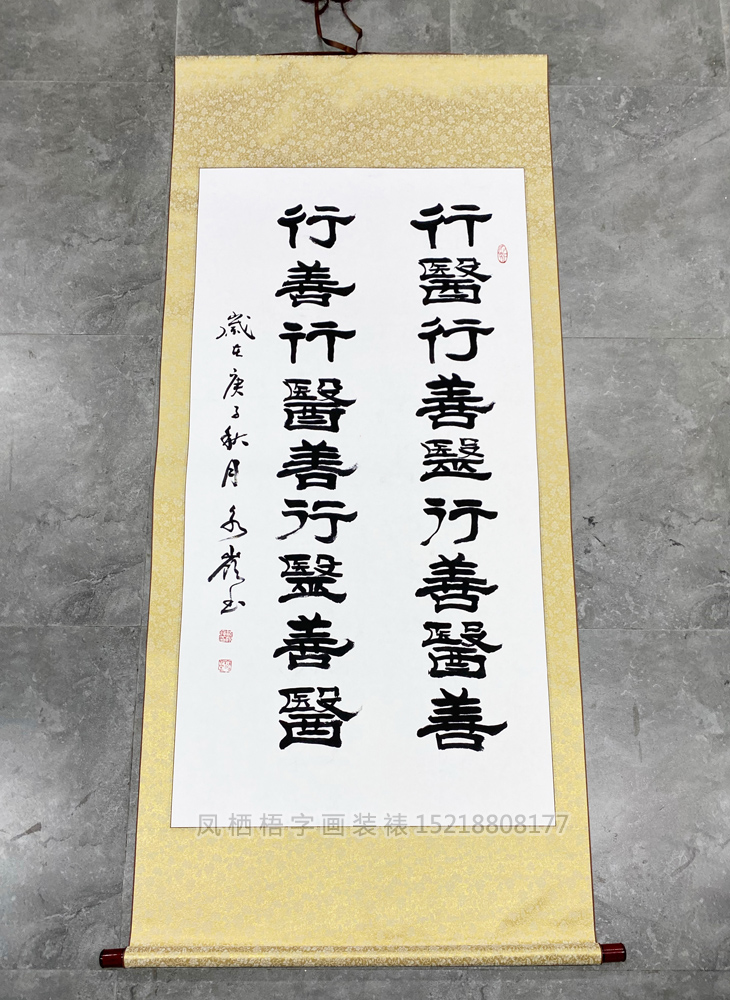 行醫行善毉行善醫善
行善行醫善行毉善醫
歲在庚子秋月
凤栖梧字画装裱15218808177